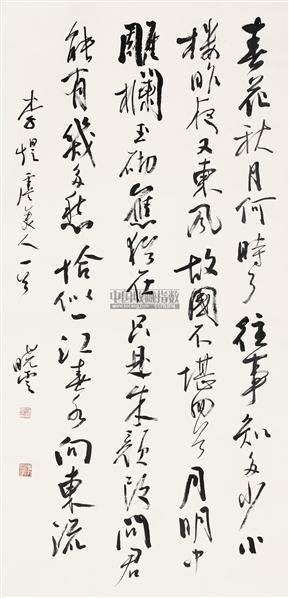 春花秋月何時了往事知多少小
樓昨夜又東風故國不堪回首月明中
雕欄玉砌應猶在只是朱顏改問君
能有幾多愁恰似一江春水向東流
李煜虞美人一首
曉雲